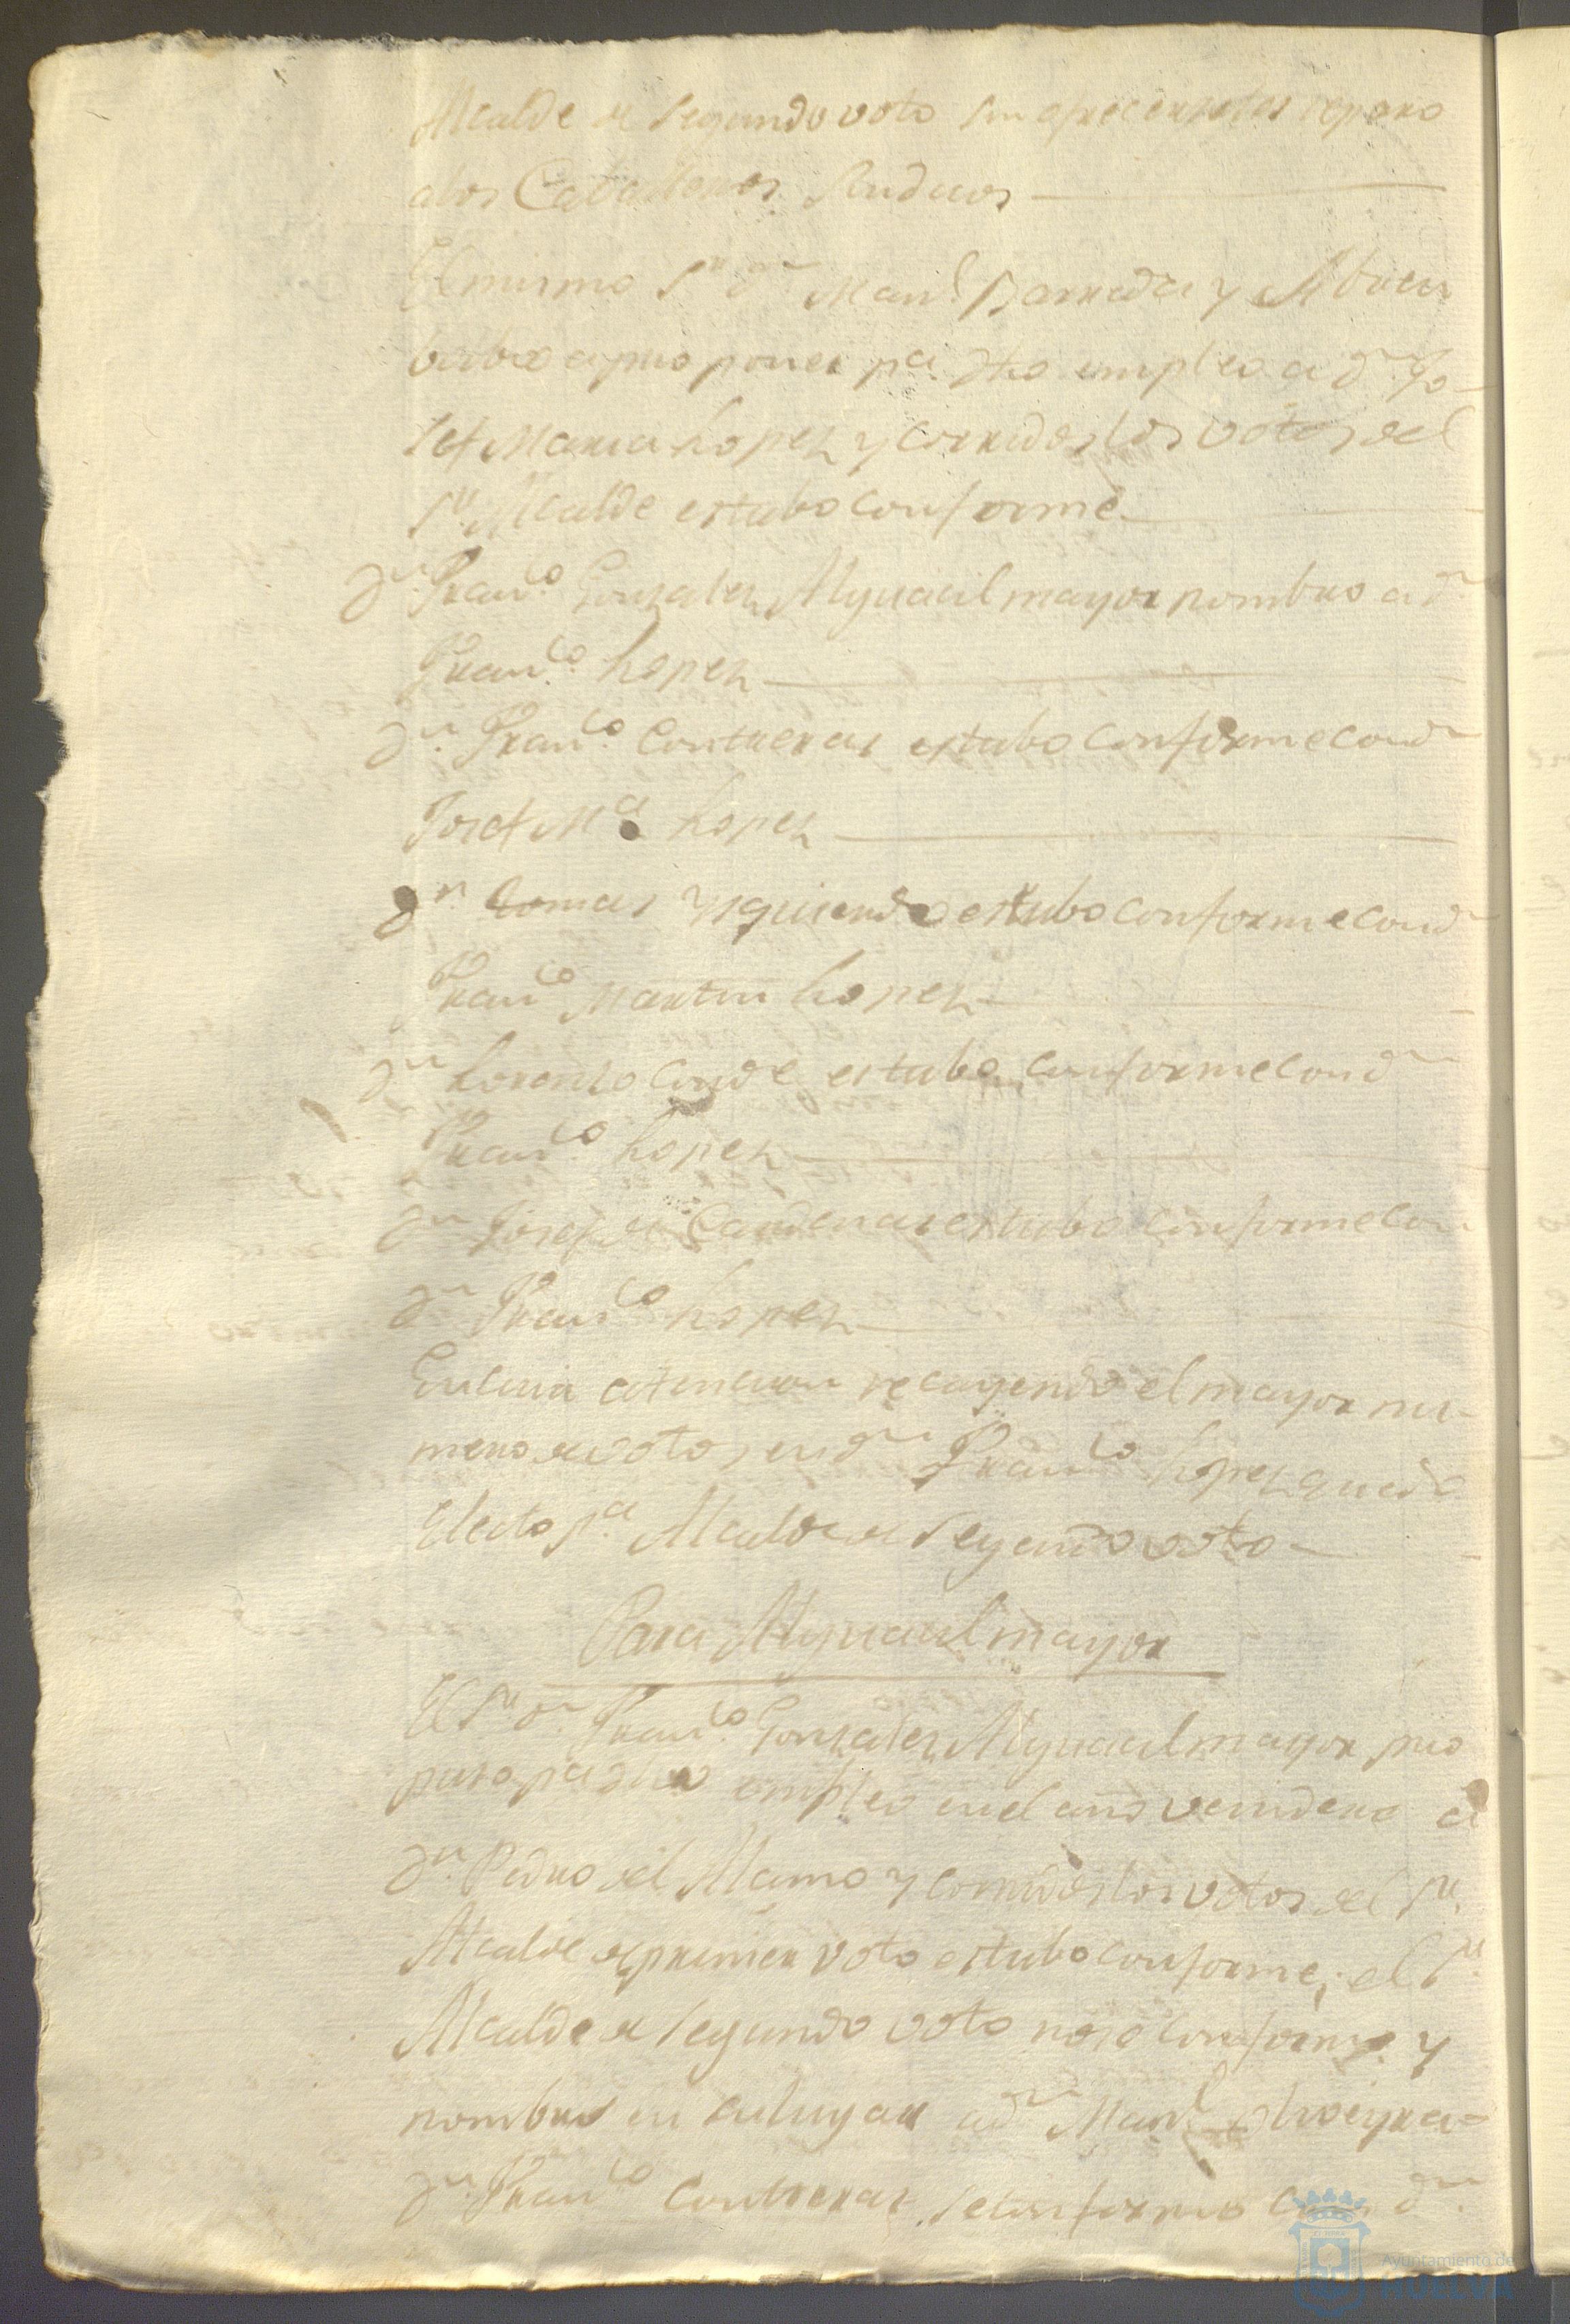 Alcalde de segundo voto sin ofrecerseles reparo
a los Caballeros Sindicos
El mismo Sr. Dn. Manl. Barreda y
bolbio a proponer pa. dho empleo a Dn. Jo-
sef Maria Lopez y corridos los votos del
Sr. Alcalde estubo conforme
Dn. Franco. Gonzalez Alguacil mayor nombro a Dn.
Franco. Lopez
Dn. Franco. Contreras estubo conforme con Dn.
Josef Ma. Lopez
Dn. Tomas Ysquierdo estubo conforme con Dn.
Franco. Martin Lopez
Dn. Lorenzo Conde estubo conforme con Dn.
Franco. Lopez
Dn. Josef de Cardenas estubo conforme con
Dn. Franco. Lopez
En cuia atencion recayendo el mayor nu-
mero de votos en Dn. Franco. Lopez queda
Electo pa. Alcalde de Segundo voto
Para Alguacil mayor
El Sr. Dn. Franco. Gonzalez Alguacil mayor pro
puso pa dho empleo en el año venidero a
Dn. Pedro del Alamo y corridos los votos del Sr.
Alcalde de primer voto estubo conforme, el Sr.
Alcalde de segundo voto no se conformo y
nombro en su lugar a Dn. Manl.
Dn. Franco. Contreras se conformo con Dn.
Ayuntamiento de
HUELVA